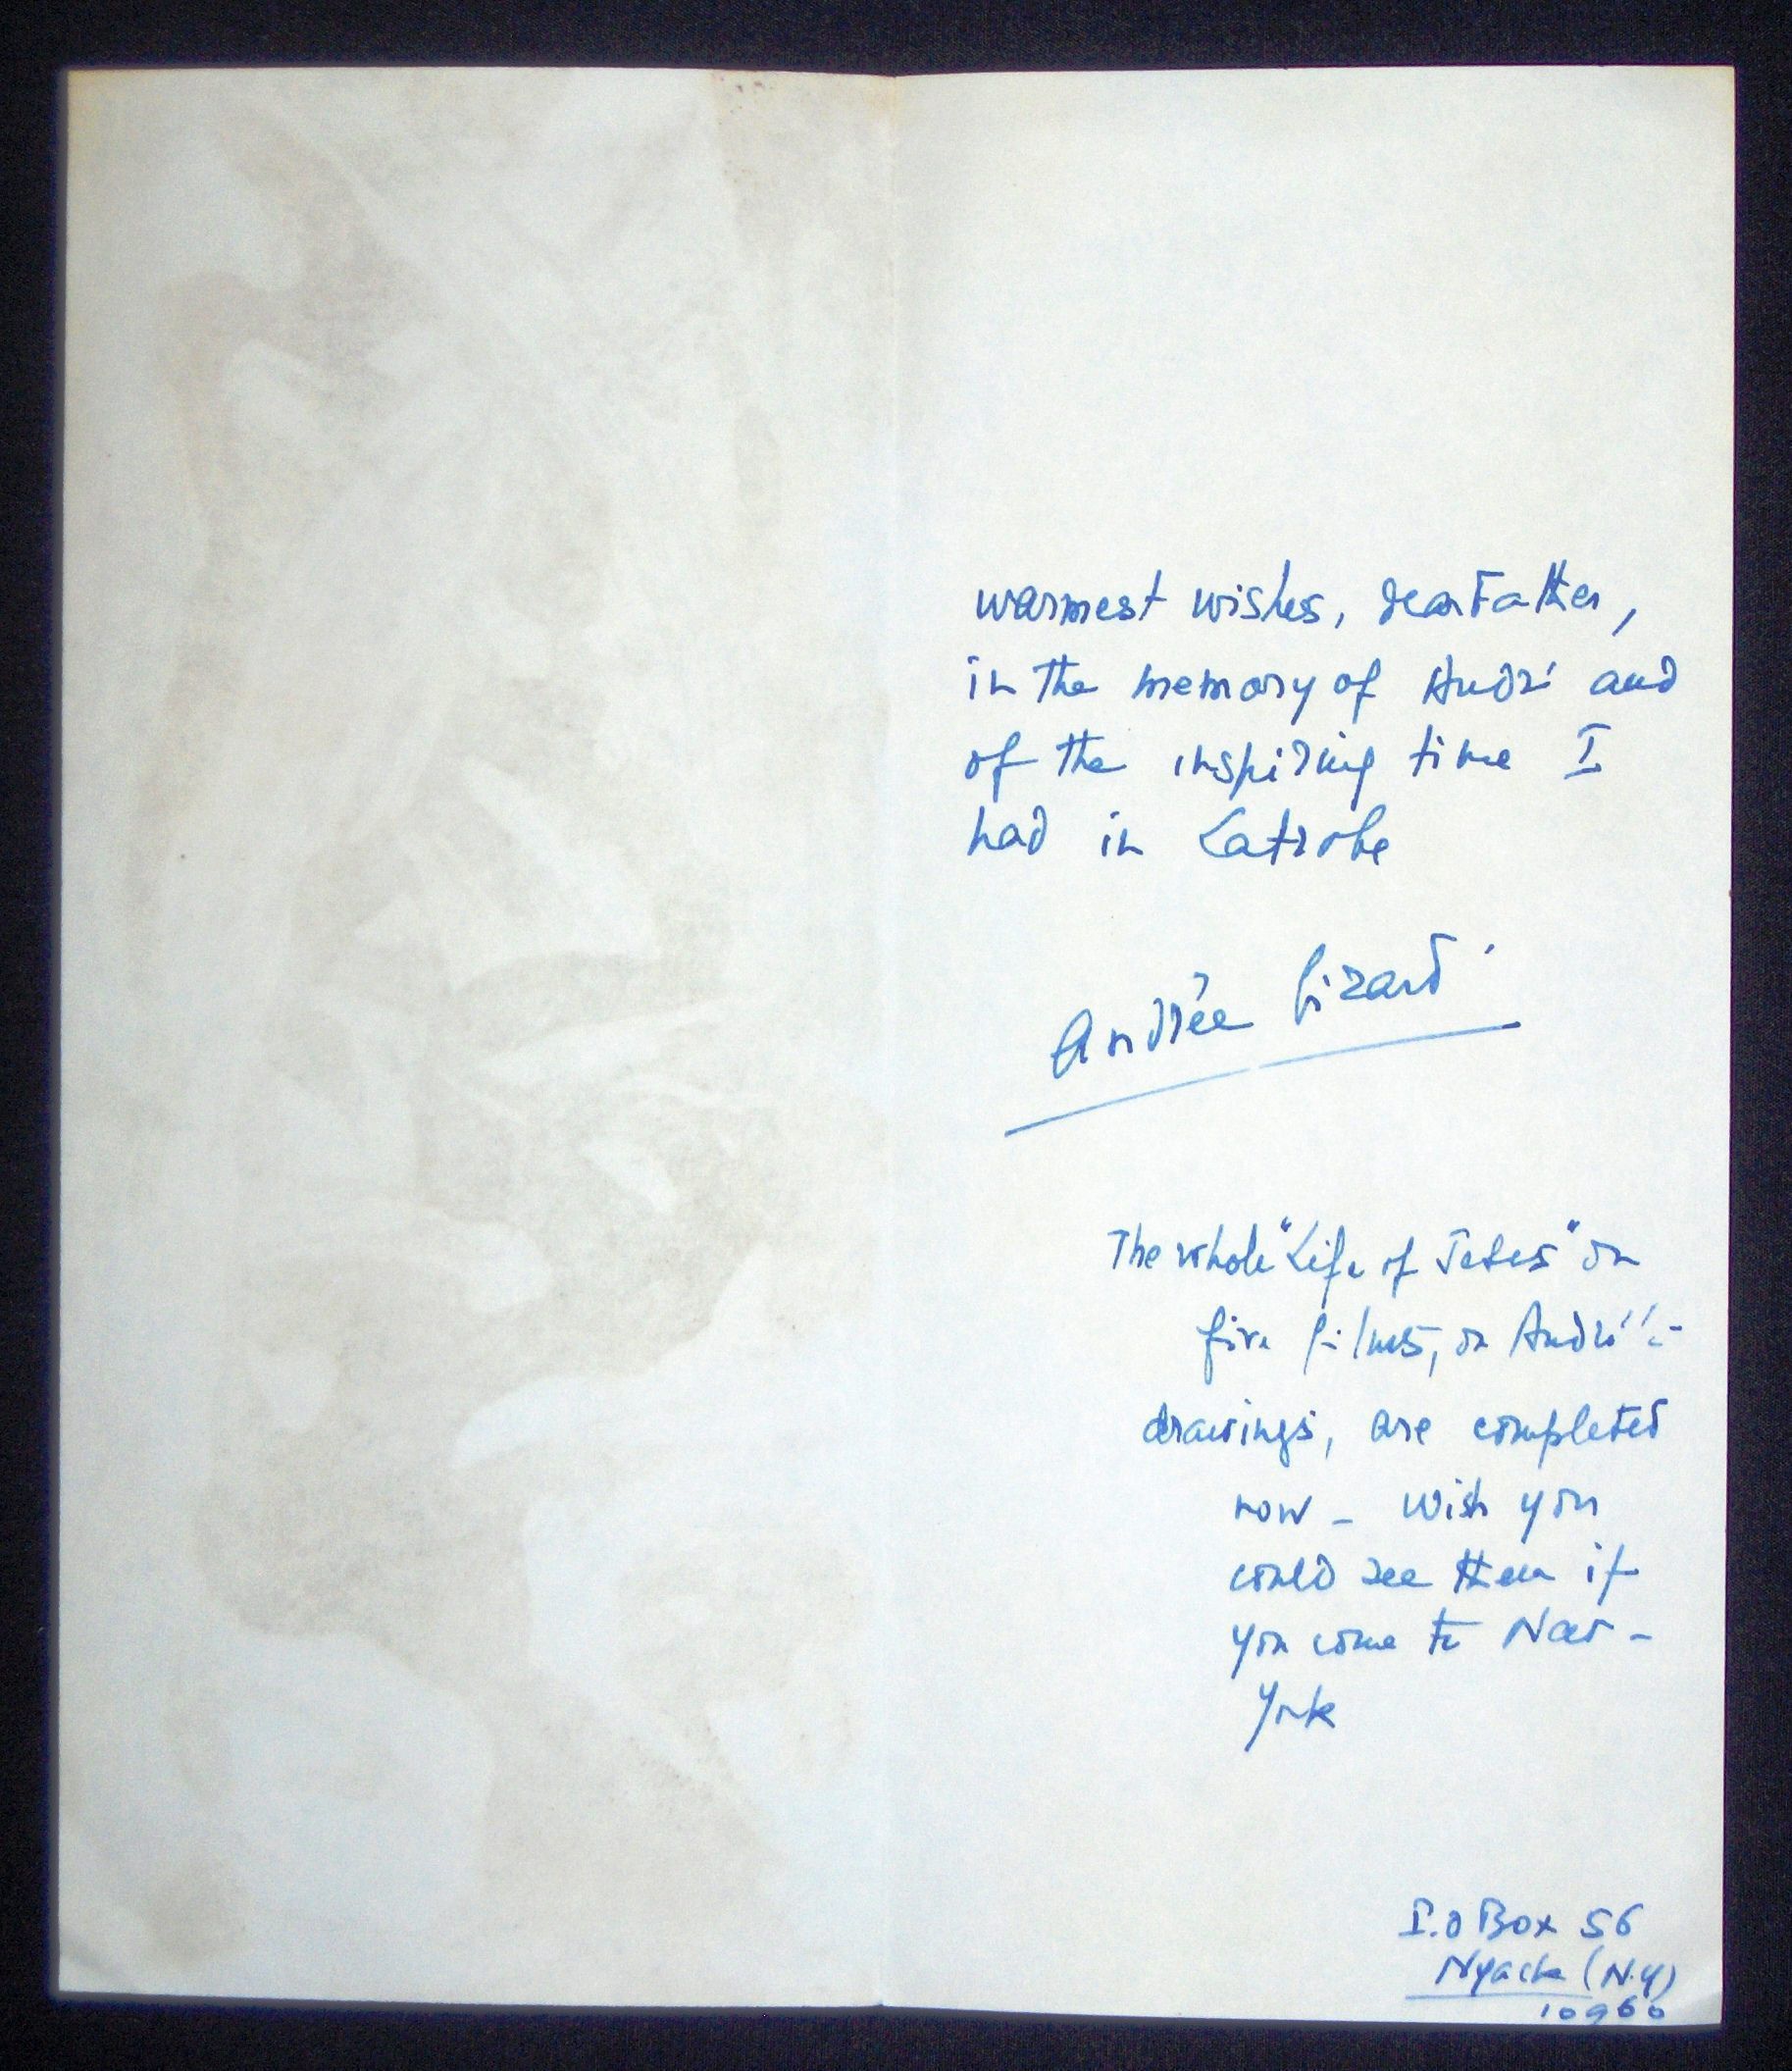 warmest wishes, dear Father,
in the memory of André and
of the inspiring time I
had in Latrobe
Andrée Girard
The whole "Life of Jesus" on
five films, on André's
drawings, are completed
now - Wish you
could see them if
you come to New-
York
P.O Box 56
Nyack (N.Y)
10960